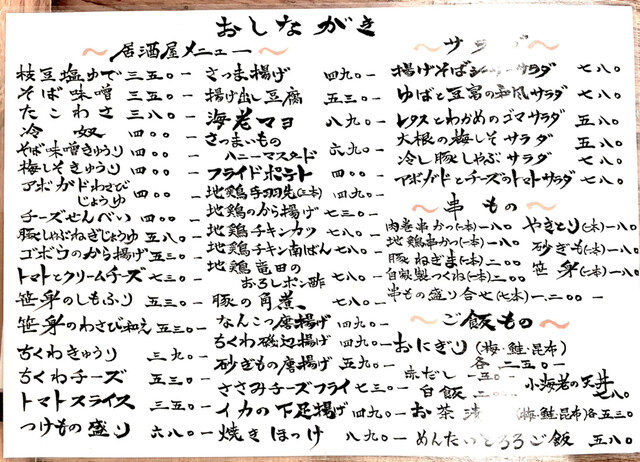 おしながき
〜居酒屋メニュー〜
枝豆塩ゆで 三五〇ー
そば味噌 三五〇ー
たこわさ 三八〇ー
冷奴 四〇〇ー
そば味噌きゅうり 四〇〇ー
梅しそきゅうり 四〇〇ー
アボガドわさび
じょうゆ 四〇〇ー
チーズせんべい 四〇〇ー
豚しゃぶねぎじょうゆ 五八〇
ゴボウのから揚げ 五三〇ー
トマトとクリームチーズ 七三〇ー
笹身のしもふり 五三〇ー
笹身のわさび和え 五三〇ー
ちくわきゅうり 三九〇ー
ちくわチーズ 五三〇ー
トマトスライス 三五〇ー
つけもの盛り 六八〇ー
さつま揚げ 四九〇ー
揚げ出し豆腐 五三〇ー
海老マヨ 八九〇ー
さつまいもの
ハニーマスタード 六九〇ー
フライドポテト 四九〇ー
地鶏手羽先(三本) 四九〇ー
地鶏のから揚げ 七三〇ー
地鶏チキンカツ 七八〇ー
地鶏チキン南ばん 七八〇ー
地鶏竜田の
おろしポン酢 七八〇ー
豚の角煮 七八〇ー
なんこつ唐揚げ 四九〇ー
ちくわ磯辺揚げ 四九〇ー
砂ぎもの唐揚げ 五九〇ー
ささみチーズフライ 七三〇ー
イカの下足揚げ 四九〇ー
焼きほっけ 八九〇ー
〜サラダ〜
揚げそばシーザーサラダ 七八〇ー
ゆばと豆富の和風サラダ 七八〇ー
レタスとわかめのゴマサラダ 七八〇ー
大根の梅しそサラダ 五八〇ー
冷し豚しゃぶサラダ 七八〇ー
アボガドとチーズのトマトサラダ 七八〇ー
〜串もの〜
肉巻串かつ(一本)一八〇 やきとり(一本)一八〇
地鶏串かつ(一本)一八〇 砂ぎも(一本)一八〇
豚ねぎま(一本)二〇〇 笹身(一本)一八〇
自家製つくね(一本)二〇〇
串もの盛り合せ(七本)一、二〇〇ー
〜ご飯もの〜
おにぎり(梅・鮭・昆布)
各二五〇ー
赤だし 一五〇ー
白飯 二〇〇ー
小海老の天丼
七八〇
お茶漬(梅・鮭・昆布)各五三〇ー
めんたいとろろご飯 五八〇